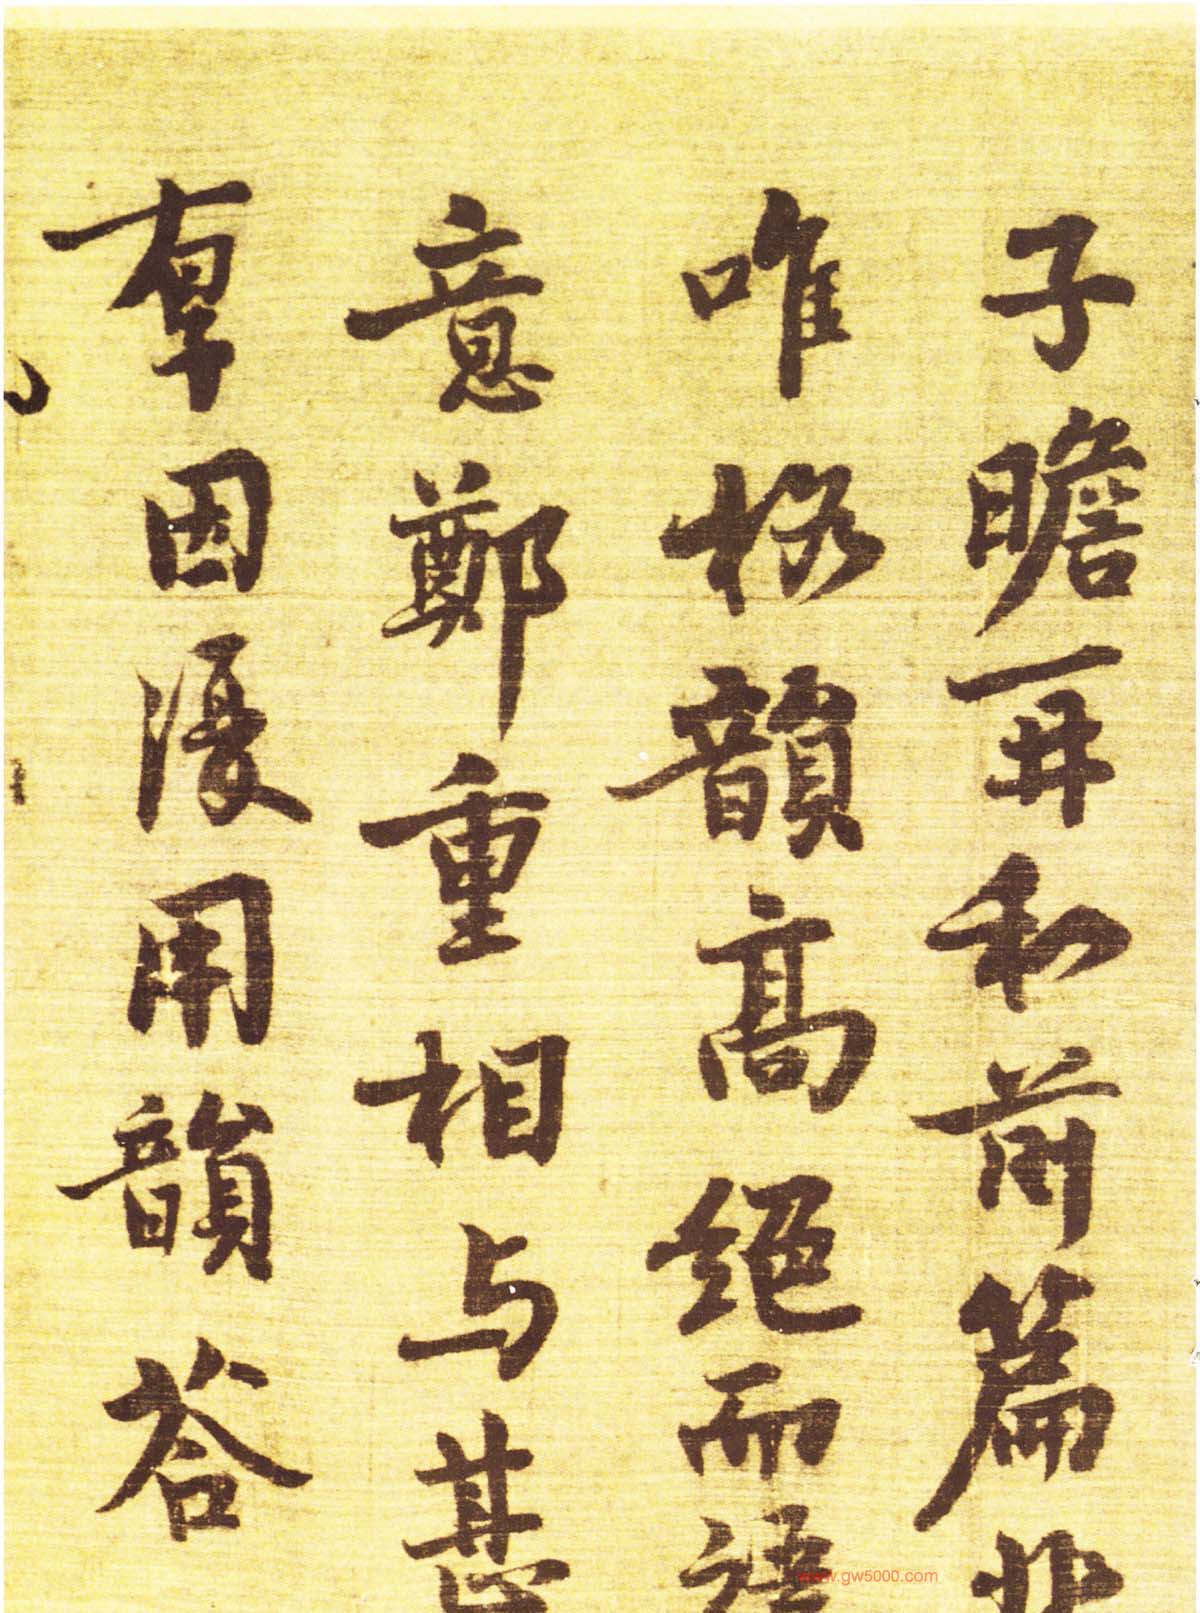 子瞻再和前篇非
唯格韻高絕而語
意鄭重相与甚
厚因復用韻答
www.gw5000.com